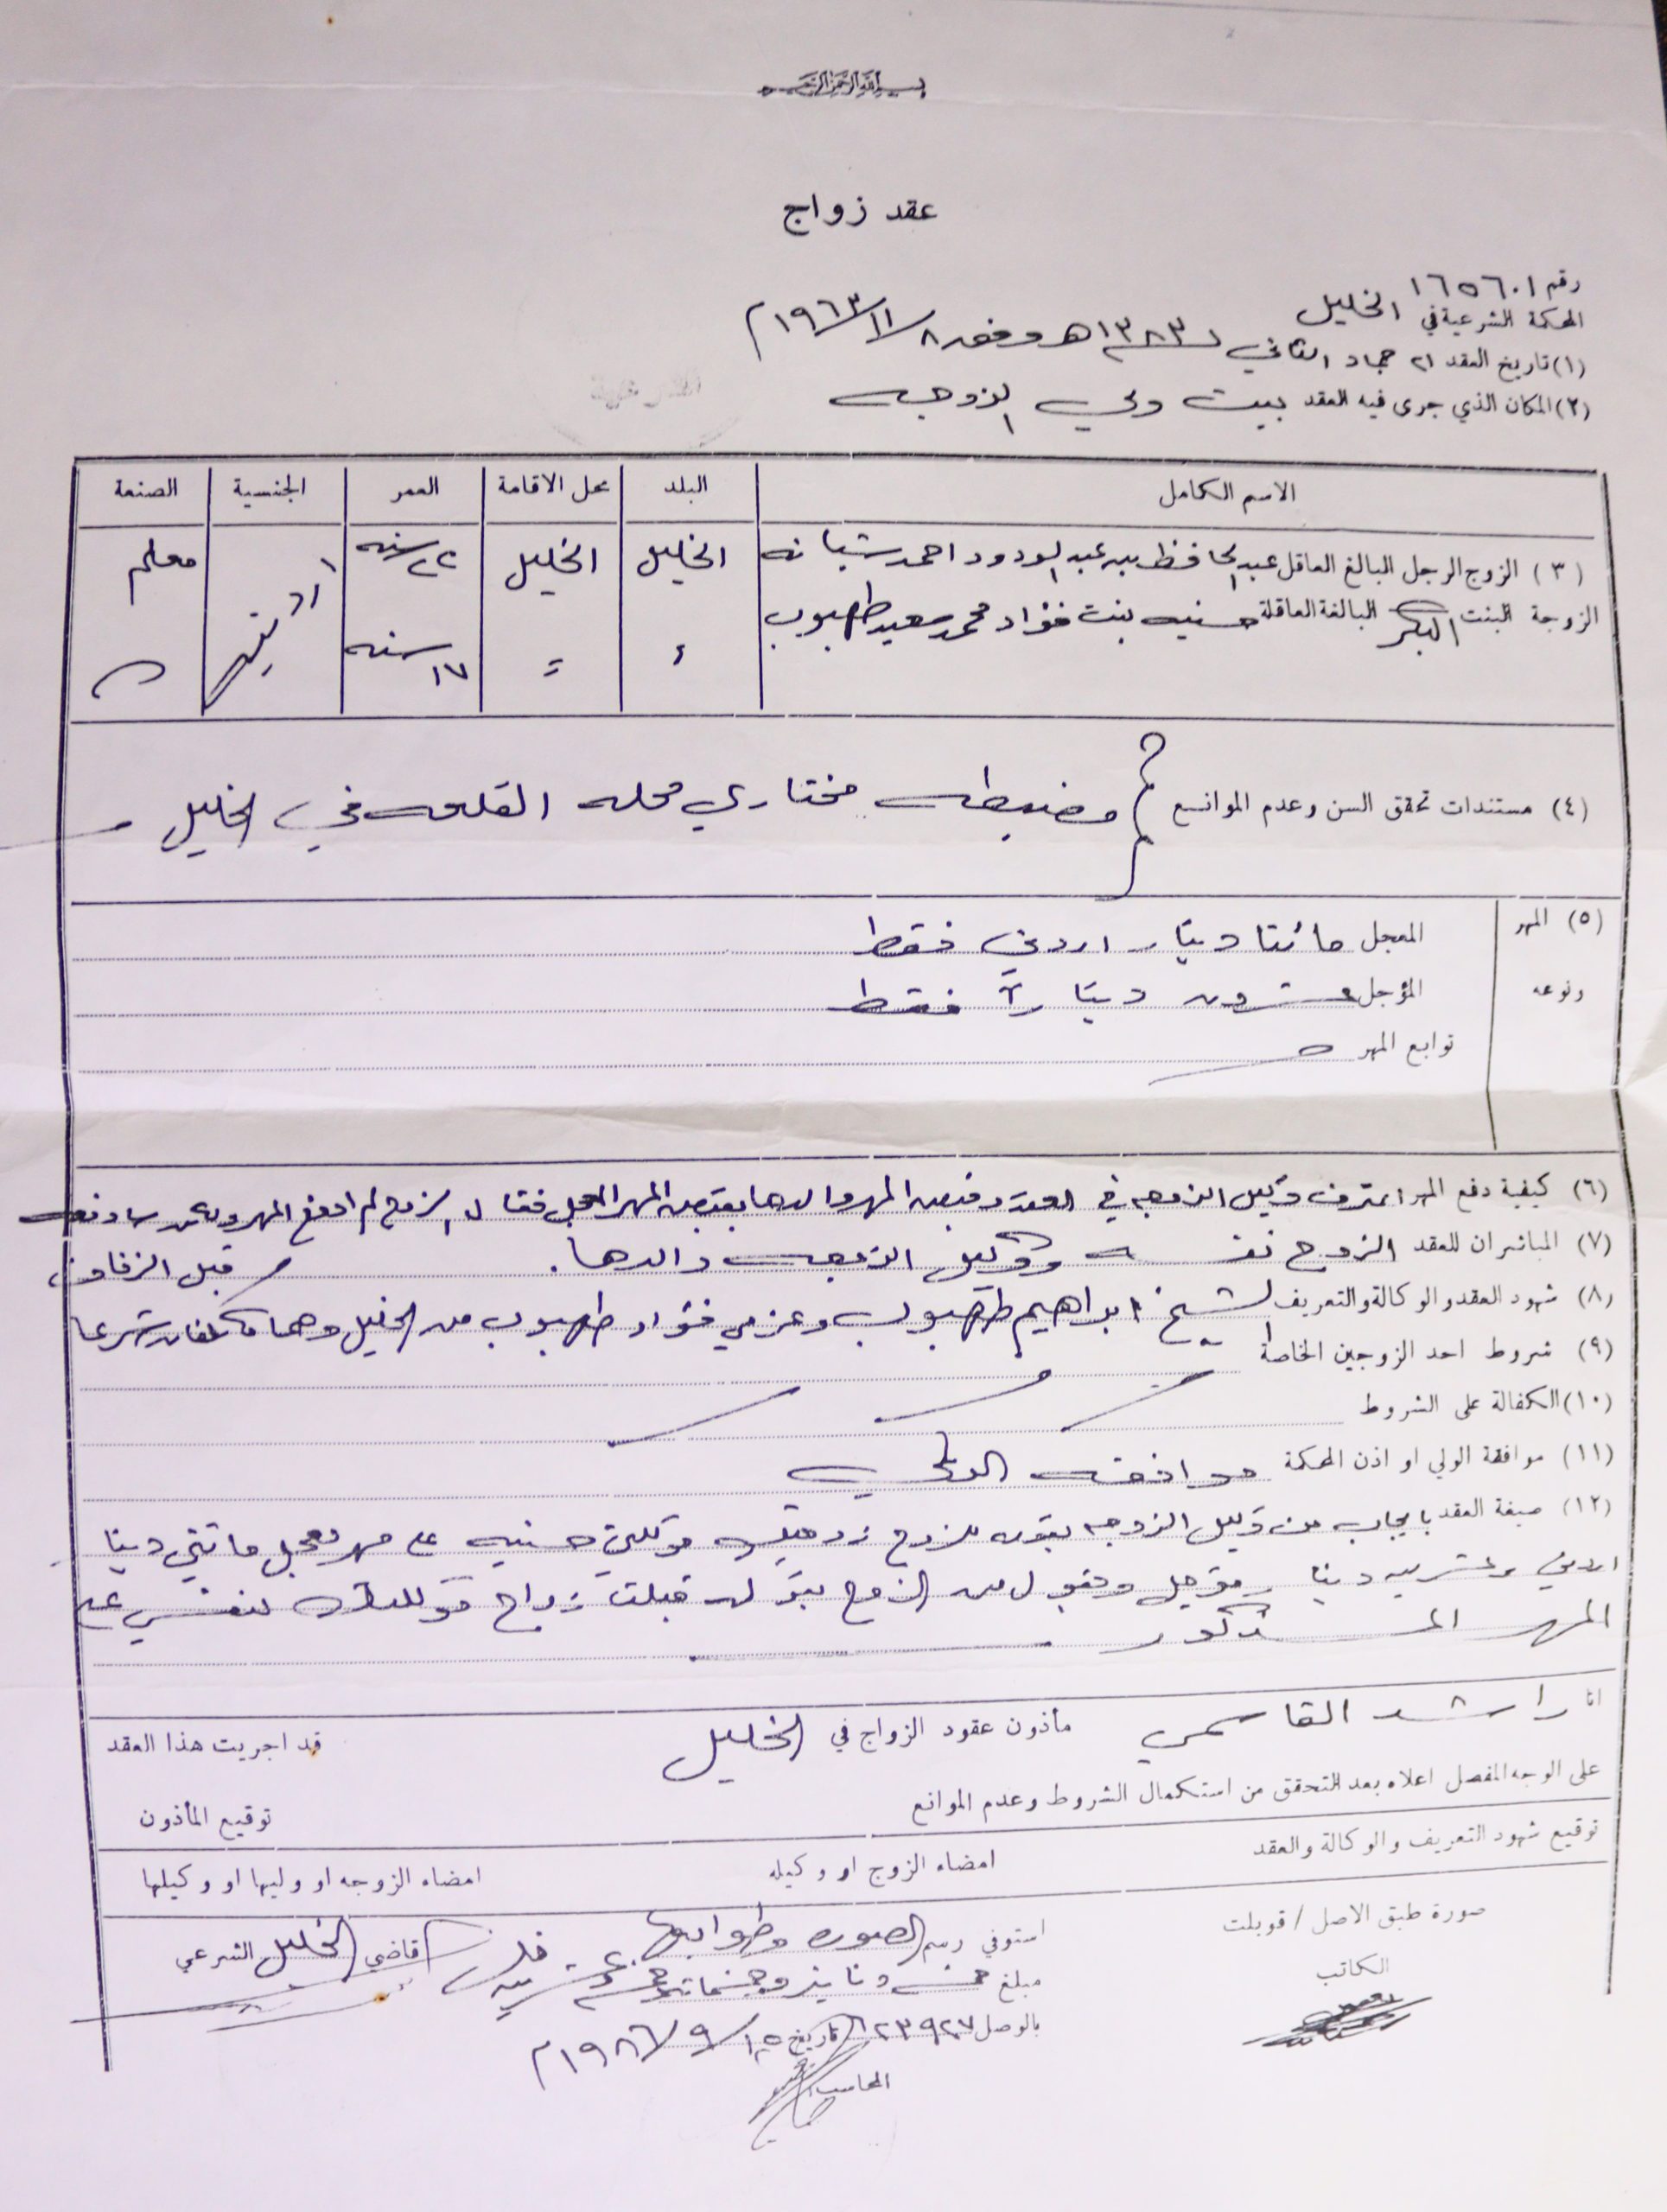 بسم الله الرحمن الرحيم
عقد زواج
رقم ١٦٥٦٠١
المحكمة الشرعية في الخليل
(١) تاريخ العقد ٢١ جماد الثاني ١٣٨٣هـ وفق ٨/١١/١٩٦٣م
(٢) المكان الذي جرى فيه العقد بيت ولي الزوجه
الاسم الكامل البلد محل الاقامة العمر الجنسية الصنعة
(٣) الزوج الرجل البالغ العاقل عبد الحافظ بن عبد الودود احمد شبانه الخليل الخليل ٢٢ سنه اردنيه معلم
الزوجة البنت البكر البالغة العاقلة حسنيه بنت فؤاد محمد سعيد طهبوب ١٧ سنه
(٤) مستندات تحقق السن وعدم الموانع مضبطه مختاري محله القلعه في الخليل
(٥) المهر المعجل مائتا دينار اردني فقط
ونوعه المؤجل عشرون دينارآ فقط
توابع المهر
(٦) كيفية دفع المهر اعترف وكيل الزوجه في العقد وقبض المهر والدها بقبض المهر المعجل فقال الزوج لم ادفع المهر وسادفعه
قبل الزفاف
(٧) المباشران للعقد الزوج نفسه ووكيل الزوجه والدها.
(٨) شهود العقد والوكالة والتعريف الشيخ ابراهيم طهبوب وعزمي فؤاد طهبوب من الخليل وهما مكلفان شرعا
(٩) شروط احد الزوجين الخاصة
(١٠) الكفالة على الشروط
(١١) موافقة الولي او اذن المحكمة موافقه الولي
(١٢) صيغة العقد بايجاب من وكيل الزوجه بقوله للزوج زوجتك موكلتي حسنيه على مهر معجل مائتي دينار
اردني وعشرين دينار مؤجل وبقبول من الزوج بقوله قبلت زواج موكلتك لنفسي على
المهر المذكور
انا راشد القاسمي مأذون عقود الزواج في الخليل قد اجريت هذا العقد
على الوجه المفصل اعلاه بعد التحقق من استكمال الشروط وعدم الموانع توقيع المأذون
توقيع شهود التعريف والوكالة والعقد امضاء الزوج او وكيله امضاء الزوجه او وليها او وكيلها
صورة طبق الاصل / قوبلت
الكاتب
استوفي رسم الصوره وطوابعها
مبلغ خمسه دنانير وخمسمائة وخمسة وعشرين فلس
بالوصل ٢٣٩٢٧ تاريخ ١٥/٩/١٩٨٦م
المحاسب
قاضي الخليل الشرعي